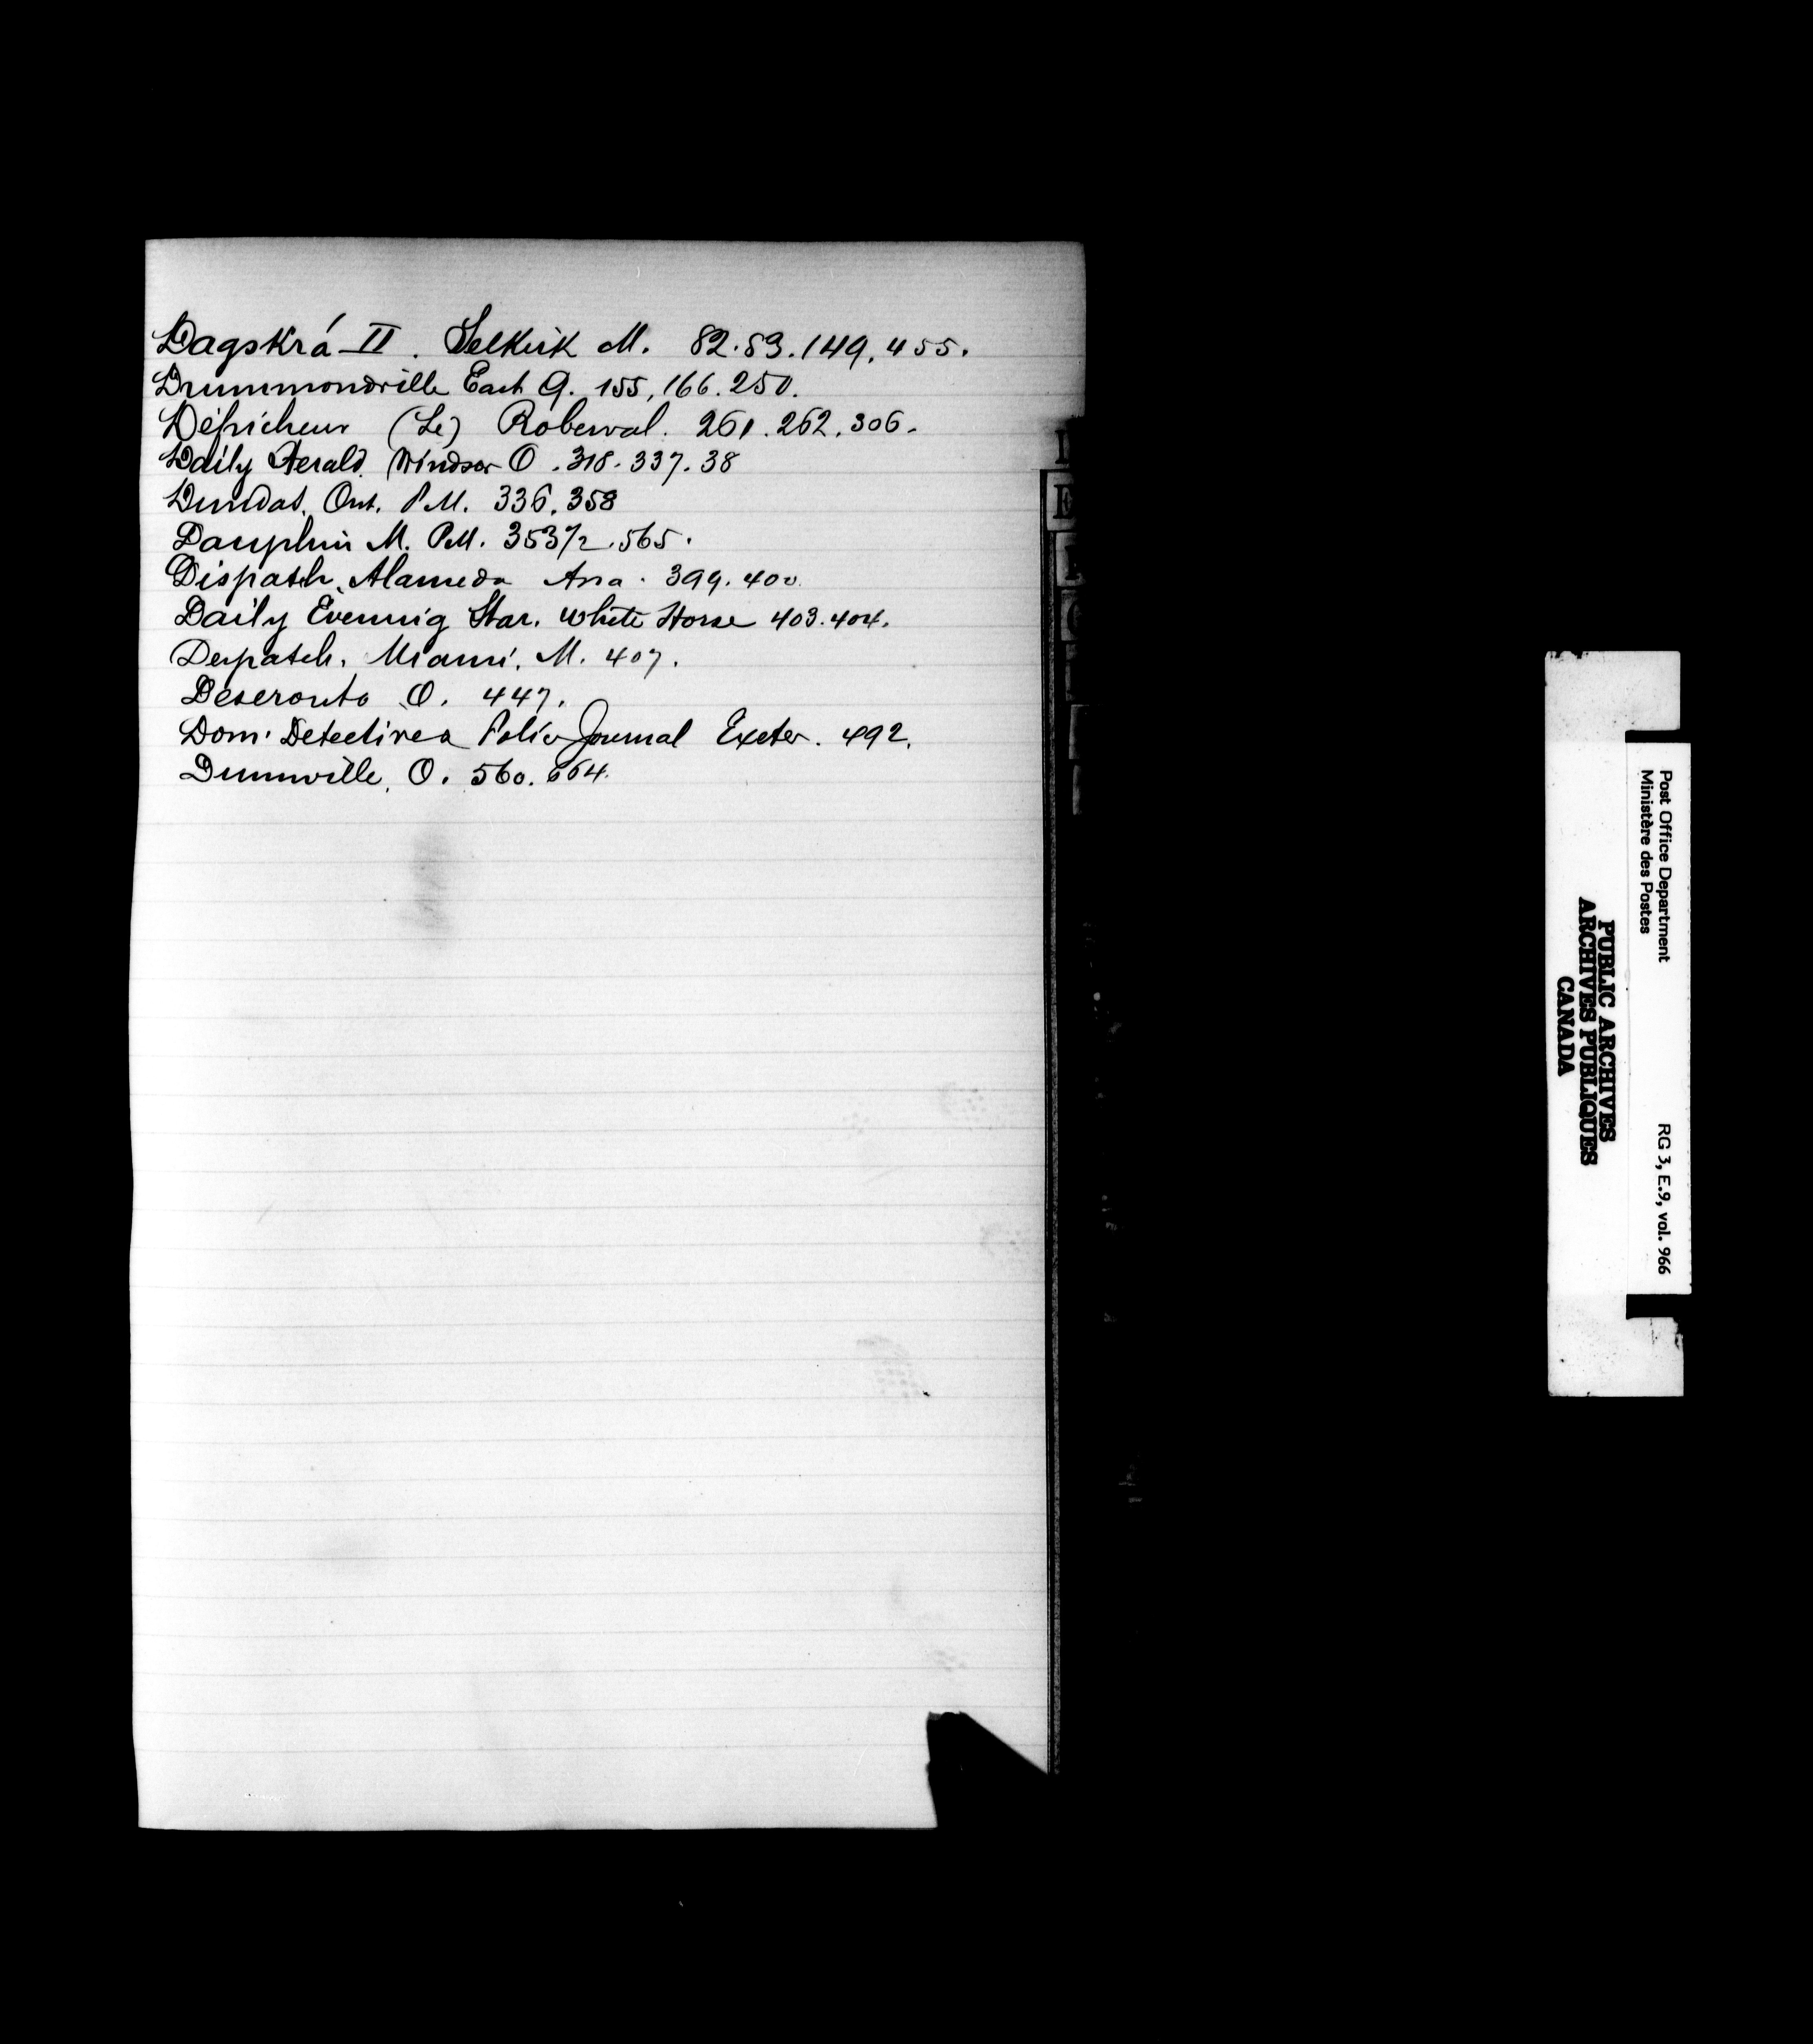 Dagskrá II. Selkirk M. 82.83.149.455.
Drummondville East Q. 155,166.250.
Défricheur (Le) Roberval. 261.262.306.
Daily Herald. Windsor O. 318.337.38
Dundas. Ont. P.M. 336.358
Dauphin M. P.M. 353 1/2.565.
Dispatch. Alameda Assa. 399.400
Daily Evening Star. White Horse 403.404.
Despatch. Miami. M. 407.
Deseronto O. 447.
Dom. Detectives Police Journal Exeter. 492.
Dunnville. O. 560.664.
Post Office Department
Ministère des Postes
RG 3, E.9, vol. 966
PUBLIC ARCHIVES
ARCHIVES PUBLIQUES
CANADA